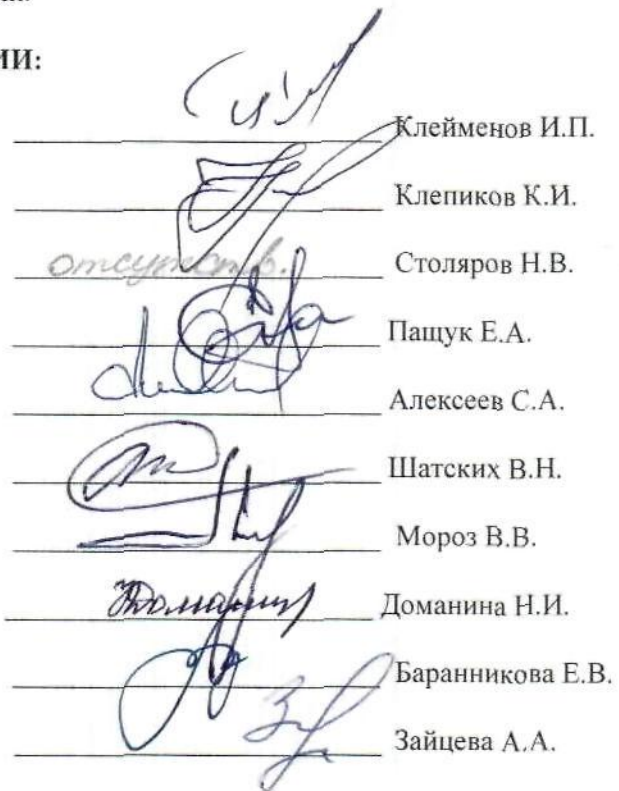 ИИ:
Клейменов И.П.
Клепиков К.И.
отсутств. Столяров Н.В.
Пащук Е.А.
Алексеев С.А.
Шатских В.Н.
Мороз В.В.
Доманина Н.И.
Баранникова Е.В.
Зайцева А.А.